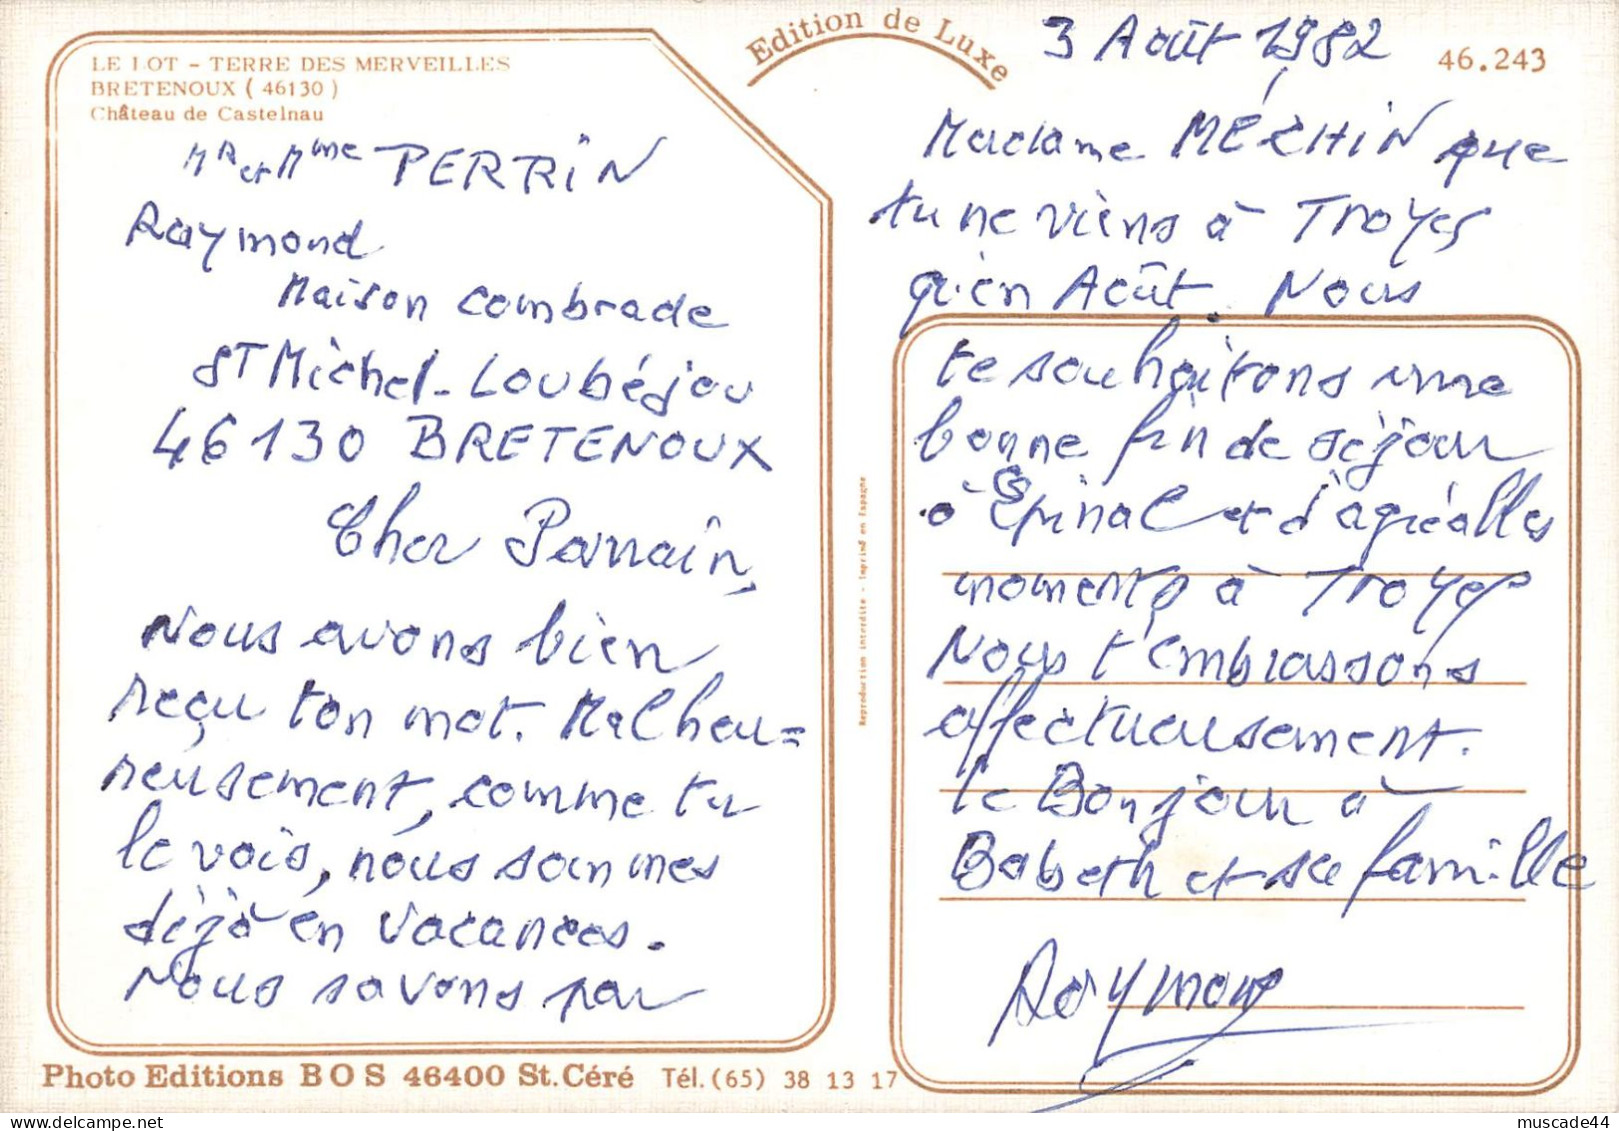 LE LOT - TERRE DES MERVEILLES
BRETENOUX ( 46130 )
Château de Castelnau
Mr et Mme PERRIN
Raymond
Maison Combrade
ST Michel-Loubéjou
46130 BRETENOUX
Cher Parrain,
Nous avons bien
reçu ton mot. Malheu=
reusement, comme tu
le vois, nous sommes
déjà en vacances.
Nous savons par
Edition de Luxe
3 Août 1982
46.243
Madame MÉCHIN que
tu ne viens à Troyes
qu'en Août. Nous
te souhaitons une
bonne fin de séjour
à Epinal et d'agréables
moments à Troyes
Nous t'embrassons
affectueusement.
le Bonjour à
Babeth et sa famille
Raymond
Reproduction interdite - Imprimé en Espagne
Photo Editions BOS 46400 St. Céré Tél. (65) 38 13 17
muscade44